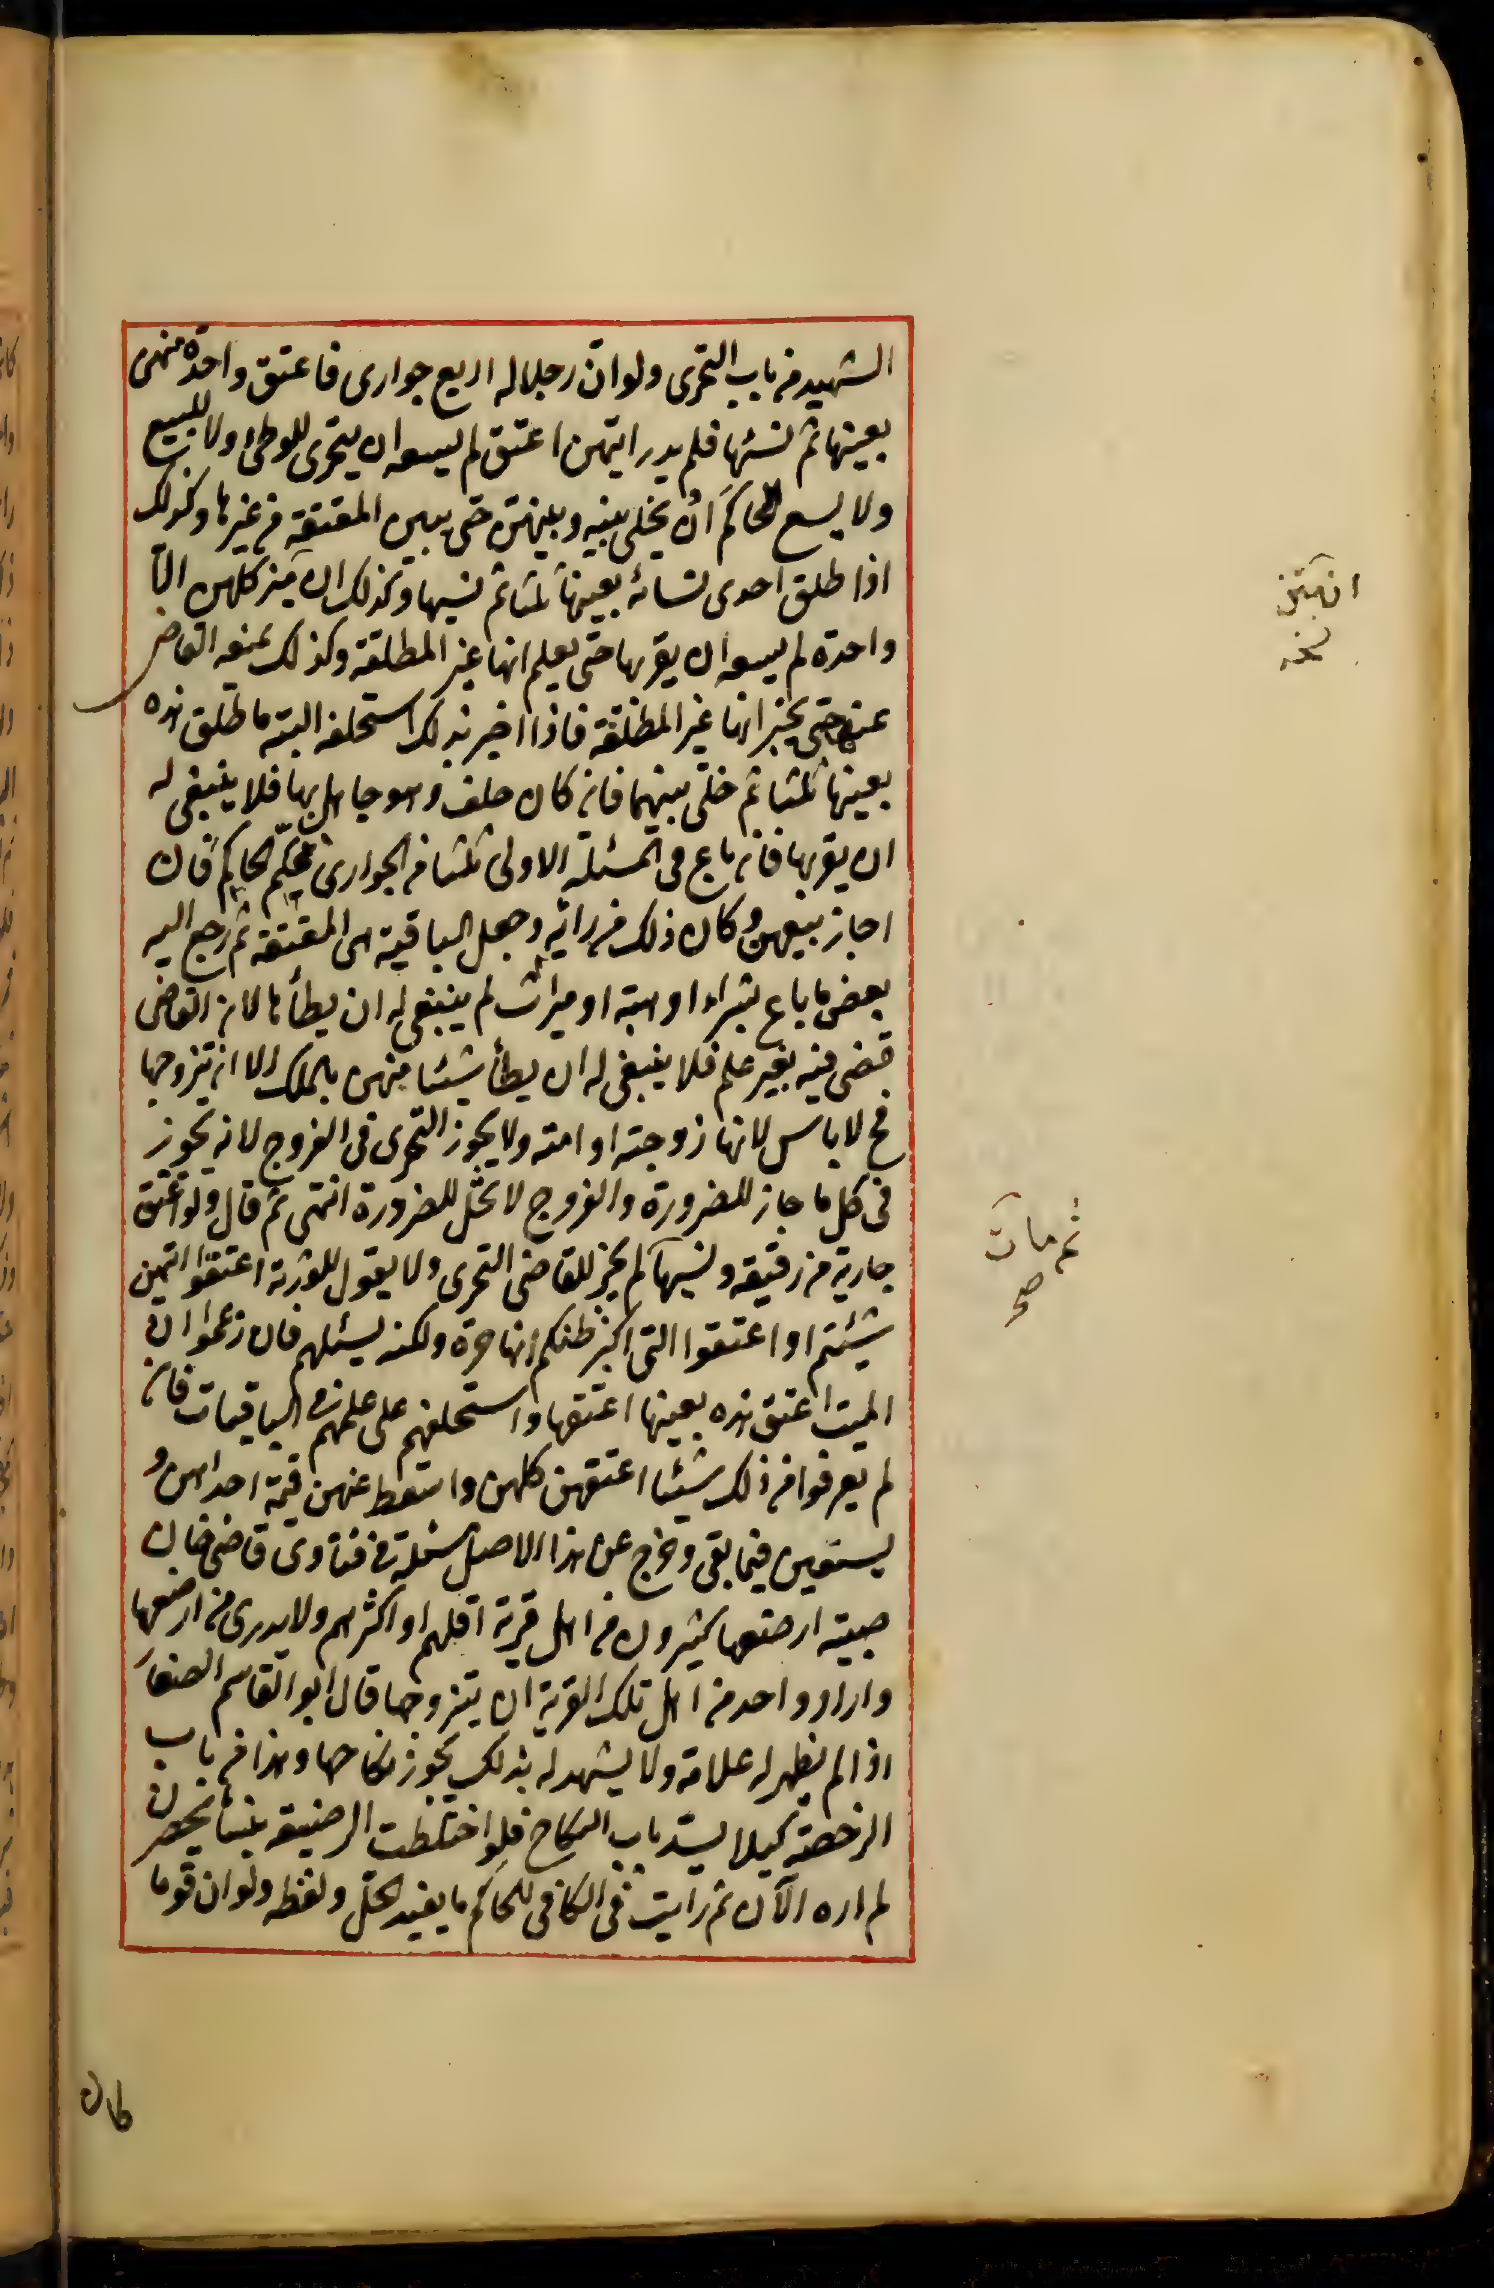 الشهيد من باب التحرى ولو ان رجلا له اربع جوارى فاعتق واحدة منهن
بعينها ثم نسيها فلم يدر ايتهن اعتق لم يسعه ان يتحرى للوطئ ولا للبيع
ولا يسع للحاكم ان يخلى بينه وبينهن حتى يبين المعتقة من غيرها وكذلك
اذا طلق احدى نسائه بعينها ثلثا ثم نسيها وكذلك ان ميز كلهن الا
واحدة لم يسعه ان يقربها حتى يعلم انها غير المطلقة وكذلك يمنعه القاضى
عنها حتى يخبر انها غير المطلقة فاذا اخبر بذلك استحلفه البتة ما طلق هذه
بعينها ثلثا ثم خلى بينهما فان كان حلف وهو جاهل بها فلا ينبغى له
ان يقربها فان باع فى المسئلة الاولى ثلثا من الجوارى فحكم الحاكم فان
اجاز بيعهن وكان ذلك من رائه وجعل الباقية هى المعتقة ثم رجع اليه
بعض ما باع بشراء او هبة او ميراث لم ينبغى له ان يطأها لان القاضى
قضى فيه بغير علم فلا ينبغى له ان يطأ شيئا منهن بالملك الا ان يتزوجها
فح لا باس لانها زوجته او امته ولا يجوز التحرى فى الفروج لانه يجوز
فى كل ما جاز للضرورة والفروج لا تحل للضرورة انتهى ثم قال ولو اعتق
جارية من رقيقه ونسيها لم يجز للقاضى التحرى ولا يقول للورثة اعتقوا ايتهن
شيئتم او اعتقوا التى اكبر ظنكم انها حرة ولكنه يسئلهم فان زعموا ان
الميت اعتق هذه بعينها اعتقها واستحلفهم على علمهم فى الباقيات فان
لم يعرفوا من ذلك شيئا اعتقهن كلهن واسقط عنهن قيمة احداهن و
يستعين فيما بقى وخرج عن هذا الاصل مسئلة فى فتاوى قاضى خان
صبية ارضعها كثيرون من اهل قرية اقلهم او اكثرهم ولا يدرى من ارضعها
واراد واحد من اهل تلك القرية ان يتزوجها قال ابو القاسم الصفار
اذا لم يظهر له علامة ولا يشهد له بذلك يجوز نكاحها وهذا من باب
الرخصة كيلا يسد باب النكاح فلو اختلطت الرضيعة بنساء يحصرن
لم اره الآن ثم رايت فى الكافى للحاكم ما يفيد الحل ولفظه ولو ان قوما
ان يميز
نسخه
ثم مات
صح
كان